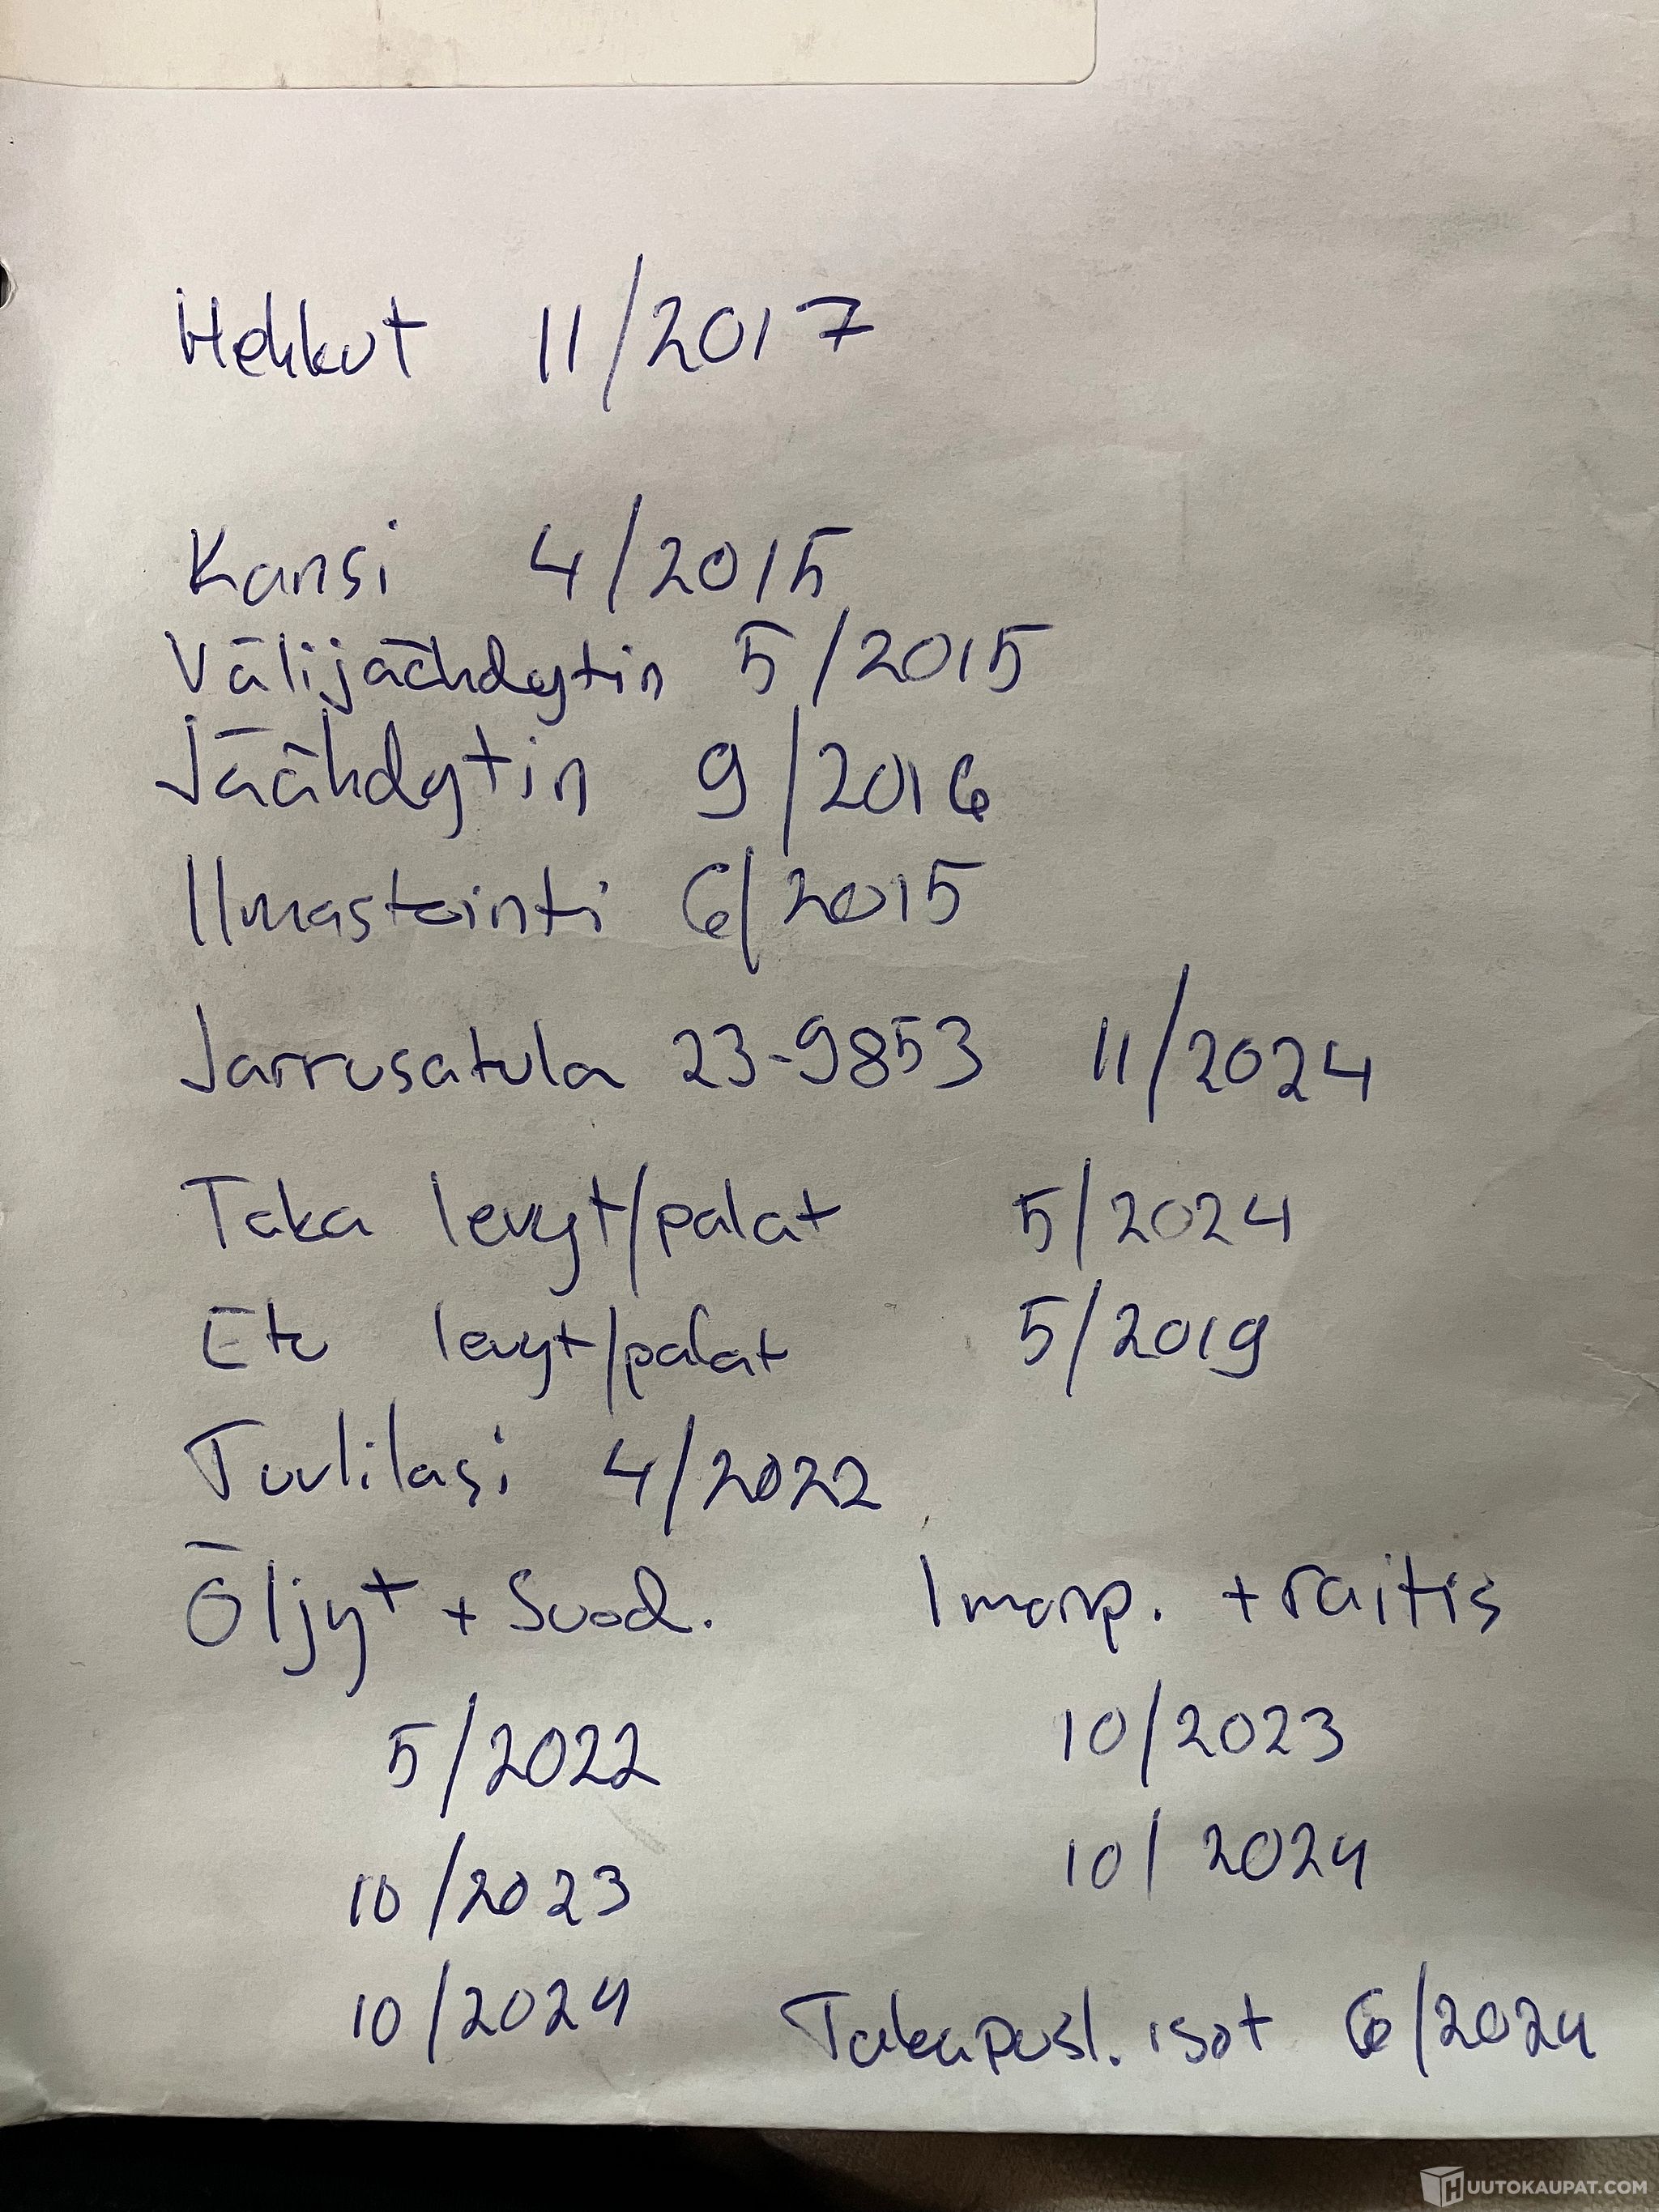 Hehkut 11/2017
Kansi 4/2015
Välijäähdytin 5/2015
Jäähdytin 9/2016
Ilmastointi 6/2015
Jarrusatula 23-9853 11/2024
Taka levyt/palat 5/2024
Etu levyt/palat 5/2019
Tuulilasi 4/2022
Öljyt + Suod. Imanp. + raitis
5/2022 10/2023
10/2023 10/2024
10/2024 Takapusl. isot 6/2024
HUUTOKAUPAT.COM